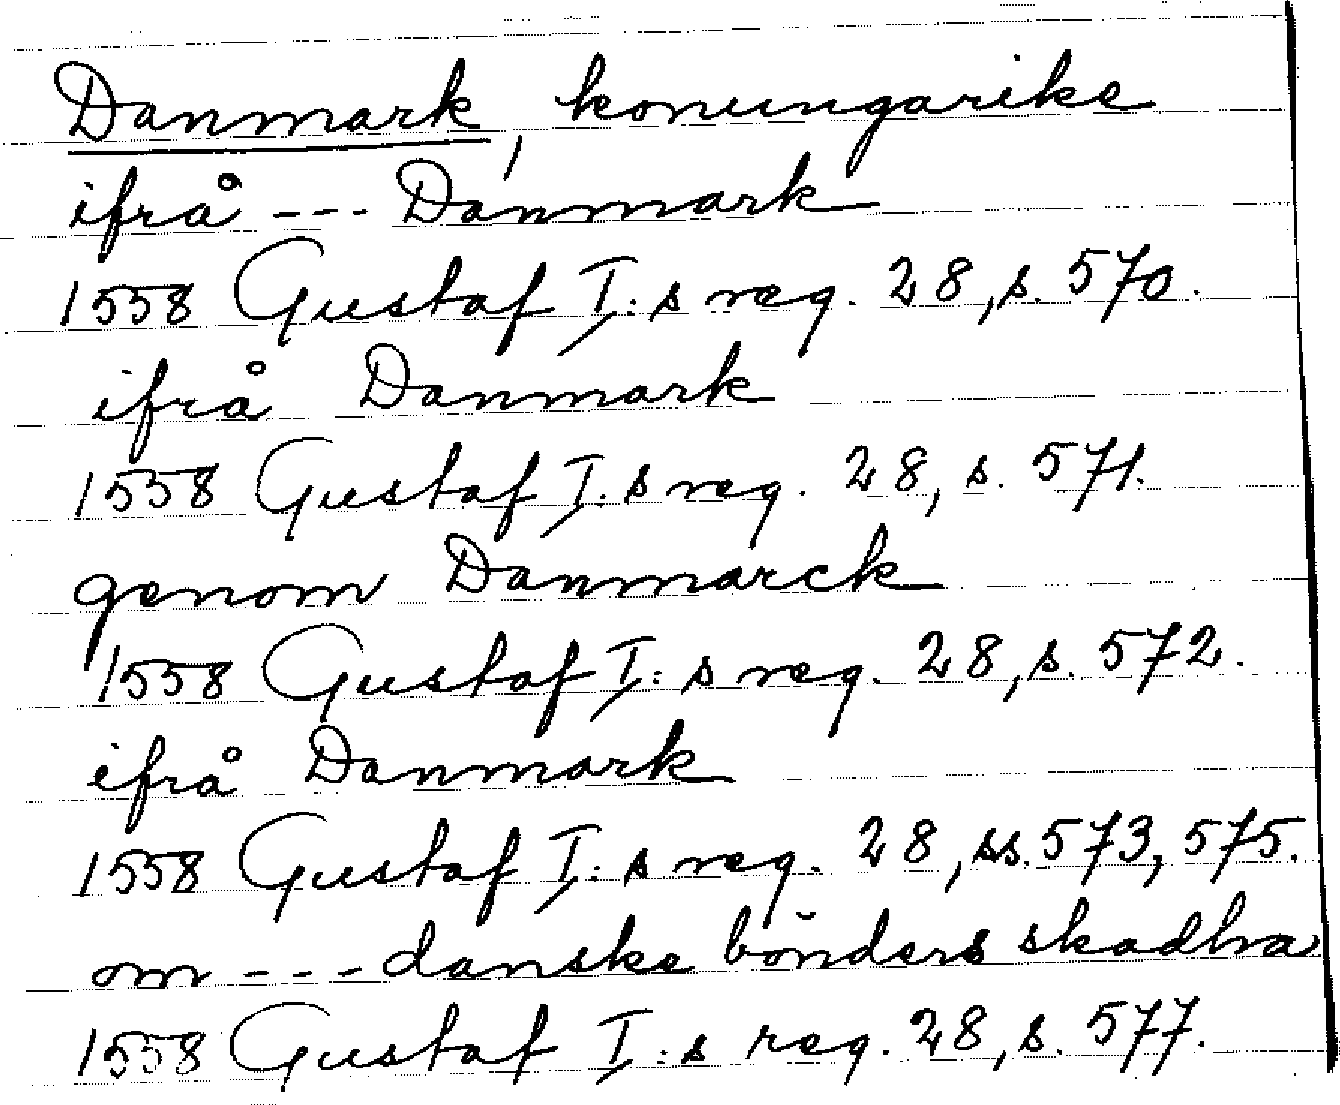 Danmark, konungarike
ifrå --- Danmark
1558 Gustaf I:s reg. 28, s. 570.
ifrå Danmark
1558 Gustaf I:s reg. 28, s. 571.
genom Danmarck
1558 Gustaf I:s reg. 28, s. 572.
ifrå Danmark
1558 Gustaf I:s reg. 28, ss. 573, 575.
om --- danske bönders skadha
1558 Gustaf I:s reg. 28, s. 577.